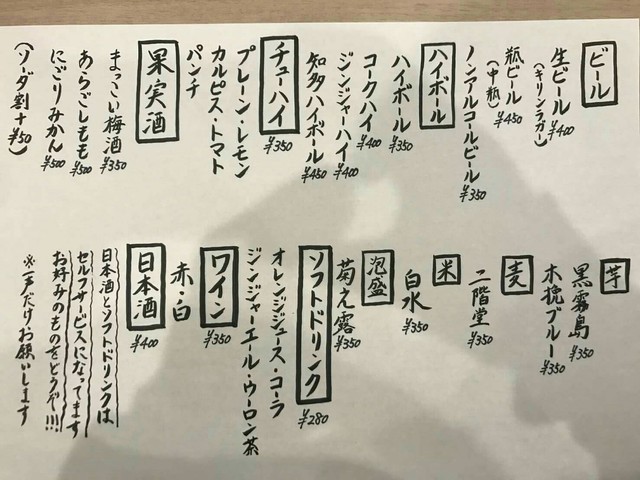 ビール
生ビール ¥400
(キリンラガー)
瓶ビール ¥450
(中瓶)
ノンアルコールビール ¥350
ハイボール
ハイボール ¥350
コークハイ ¥400
ジンジャーハイ ¥400
知多ハイボール ¥450
チューハイ ¥350
プレーン・レモン
カルピス・トマト
パンチ
果実酒
まっこい梅酒 ¥350
あらごしもも ¥500
にごりみかん ¥500
(ソーダ割+¥50)
芋
黒霧島 ¥350
木挽ブルー ¥350
麦
二階堂 ¥350
米
白水 ¥350
泡盛
菊之露 ¥350
ソフトドリンク ¥280
オレンジジュース・コーラ
ジンジャーエール・ウーロン茶
ワイン ¥350
赤・白
日本酒 ¥400
日本酒とソフトドリンクは
セルフサービスになってます
お好みのものをどうぞ!!!
※一声だけお願いします